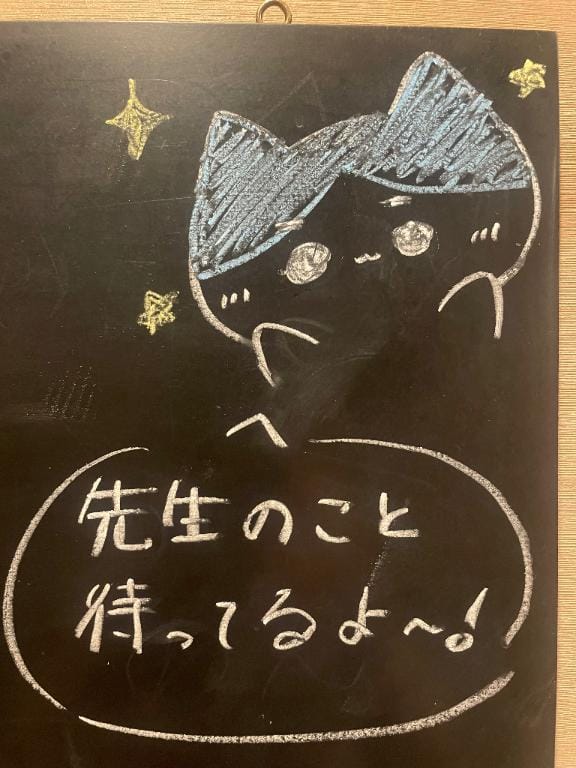 先生のこと
待ってるよ〜!